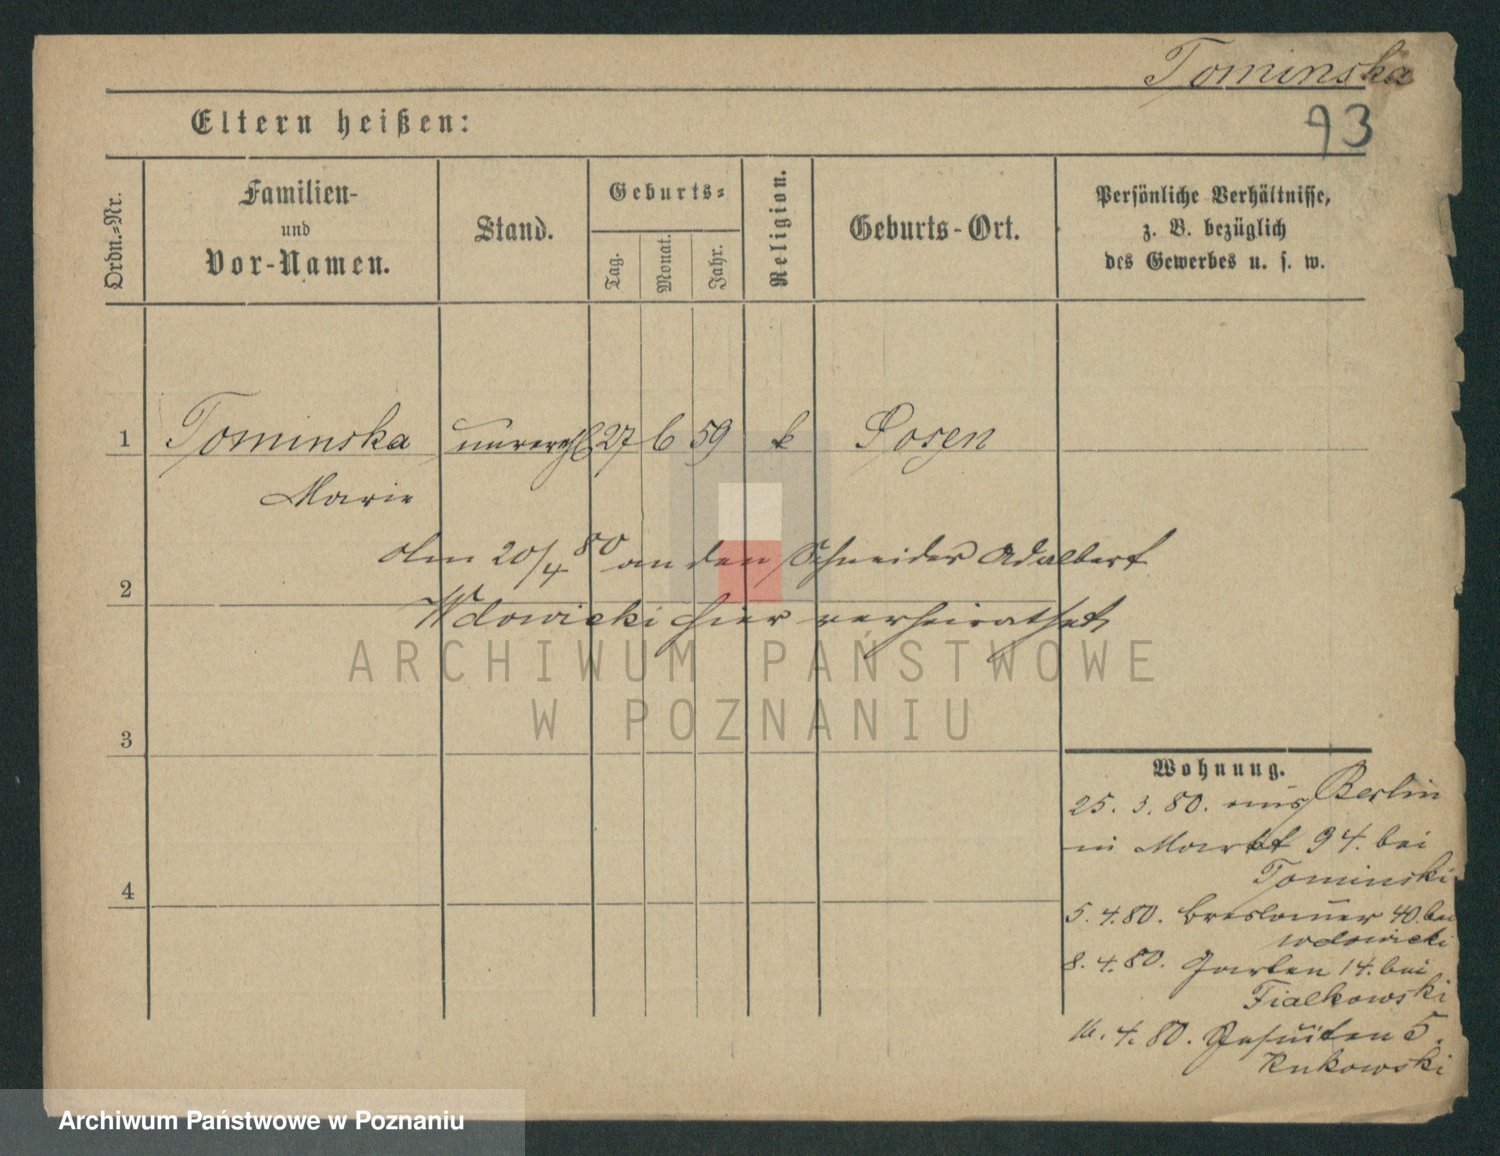 Tominska
93
Eltern heißen:
Ordn.-Nr.
Familien-
und
Vor-Namen.
Stand.
Geburts-
Tag.
Monat.
Jahr.
Religion.
Geburts-Ort.
Persönliche Verhältnisse,
z. B. bezüglich
des Gewerbes u. s. w.
1 Tominska unverehl 27 6 59 k Posen
Marie
Am 20/4 80 an den Schneider Adalbert
2
Wdowicki hier verheirathet
ARCHIWUM PAŃSTWOWE
W POZNANIU
3
Wohnung.
25. 3. 80. aus Berlin
in Markt 94. bei
Tominski
4
5. 4. 80. Breslauer 40. bei
Wdowicki
8. 4. 80. Garten 14. bei
Fialkowski
16. 4. 80. Jesuiten 5.
Rukowski
Archiwum Państwowe w Poznaniu